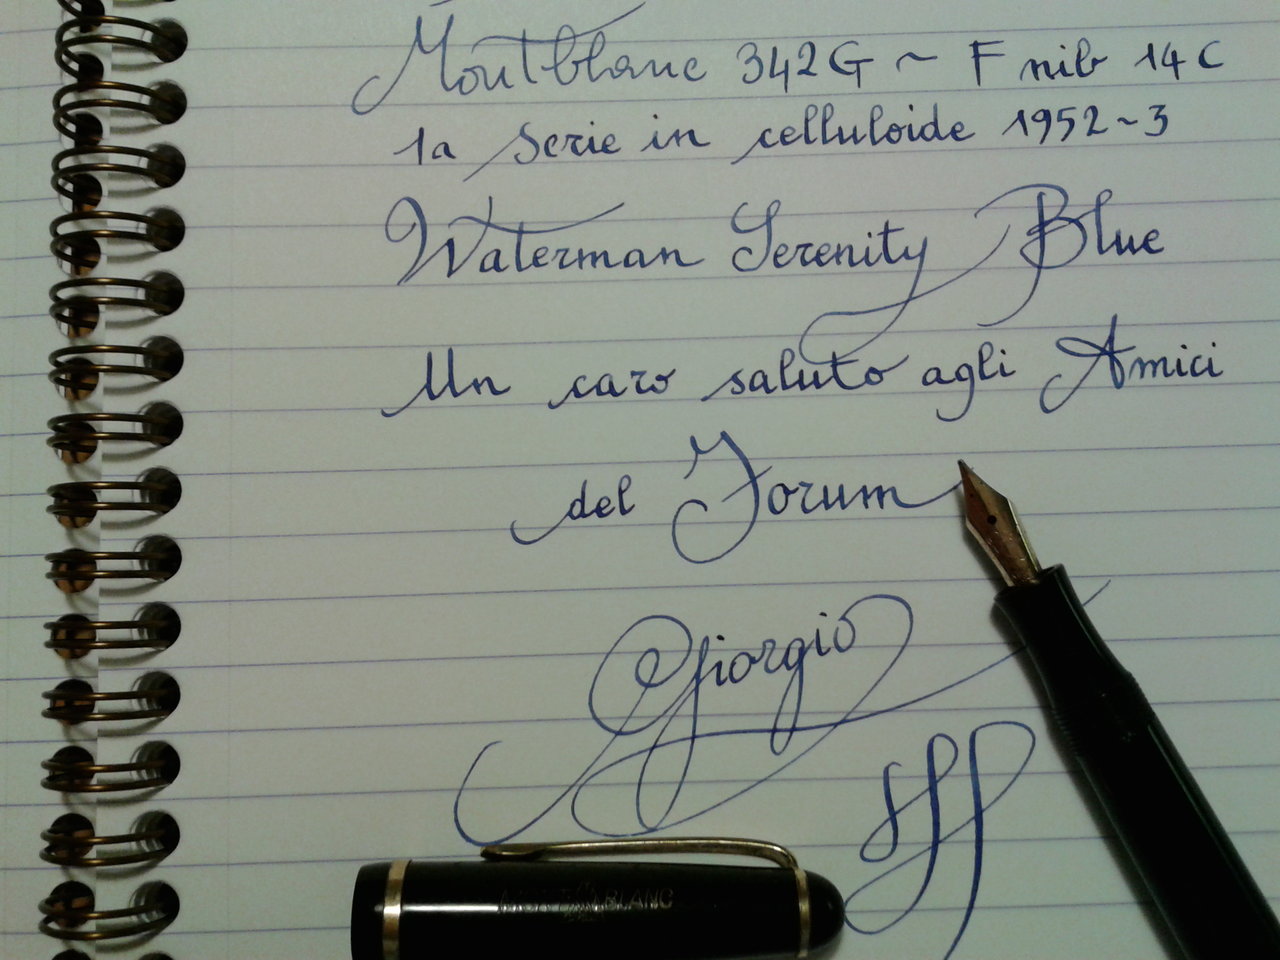 Montblanc 342G ~ F nib 14C
1a serie in celluloide 1952~3
Waterman Serenity Blue
Un caro saluto agli Amici
del Forum
Giorgio
MONTBLANC